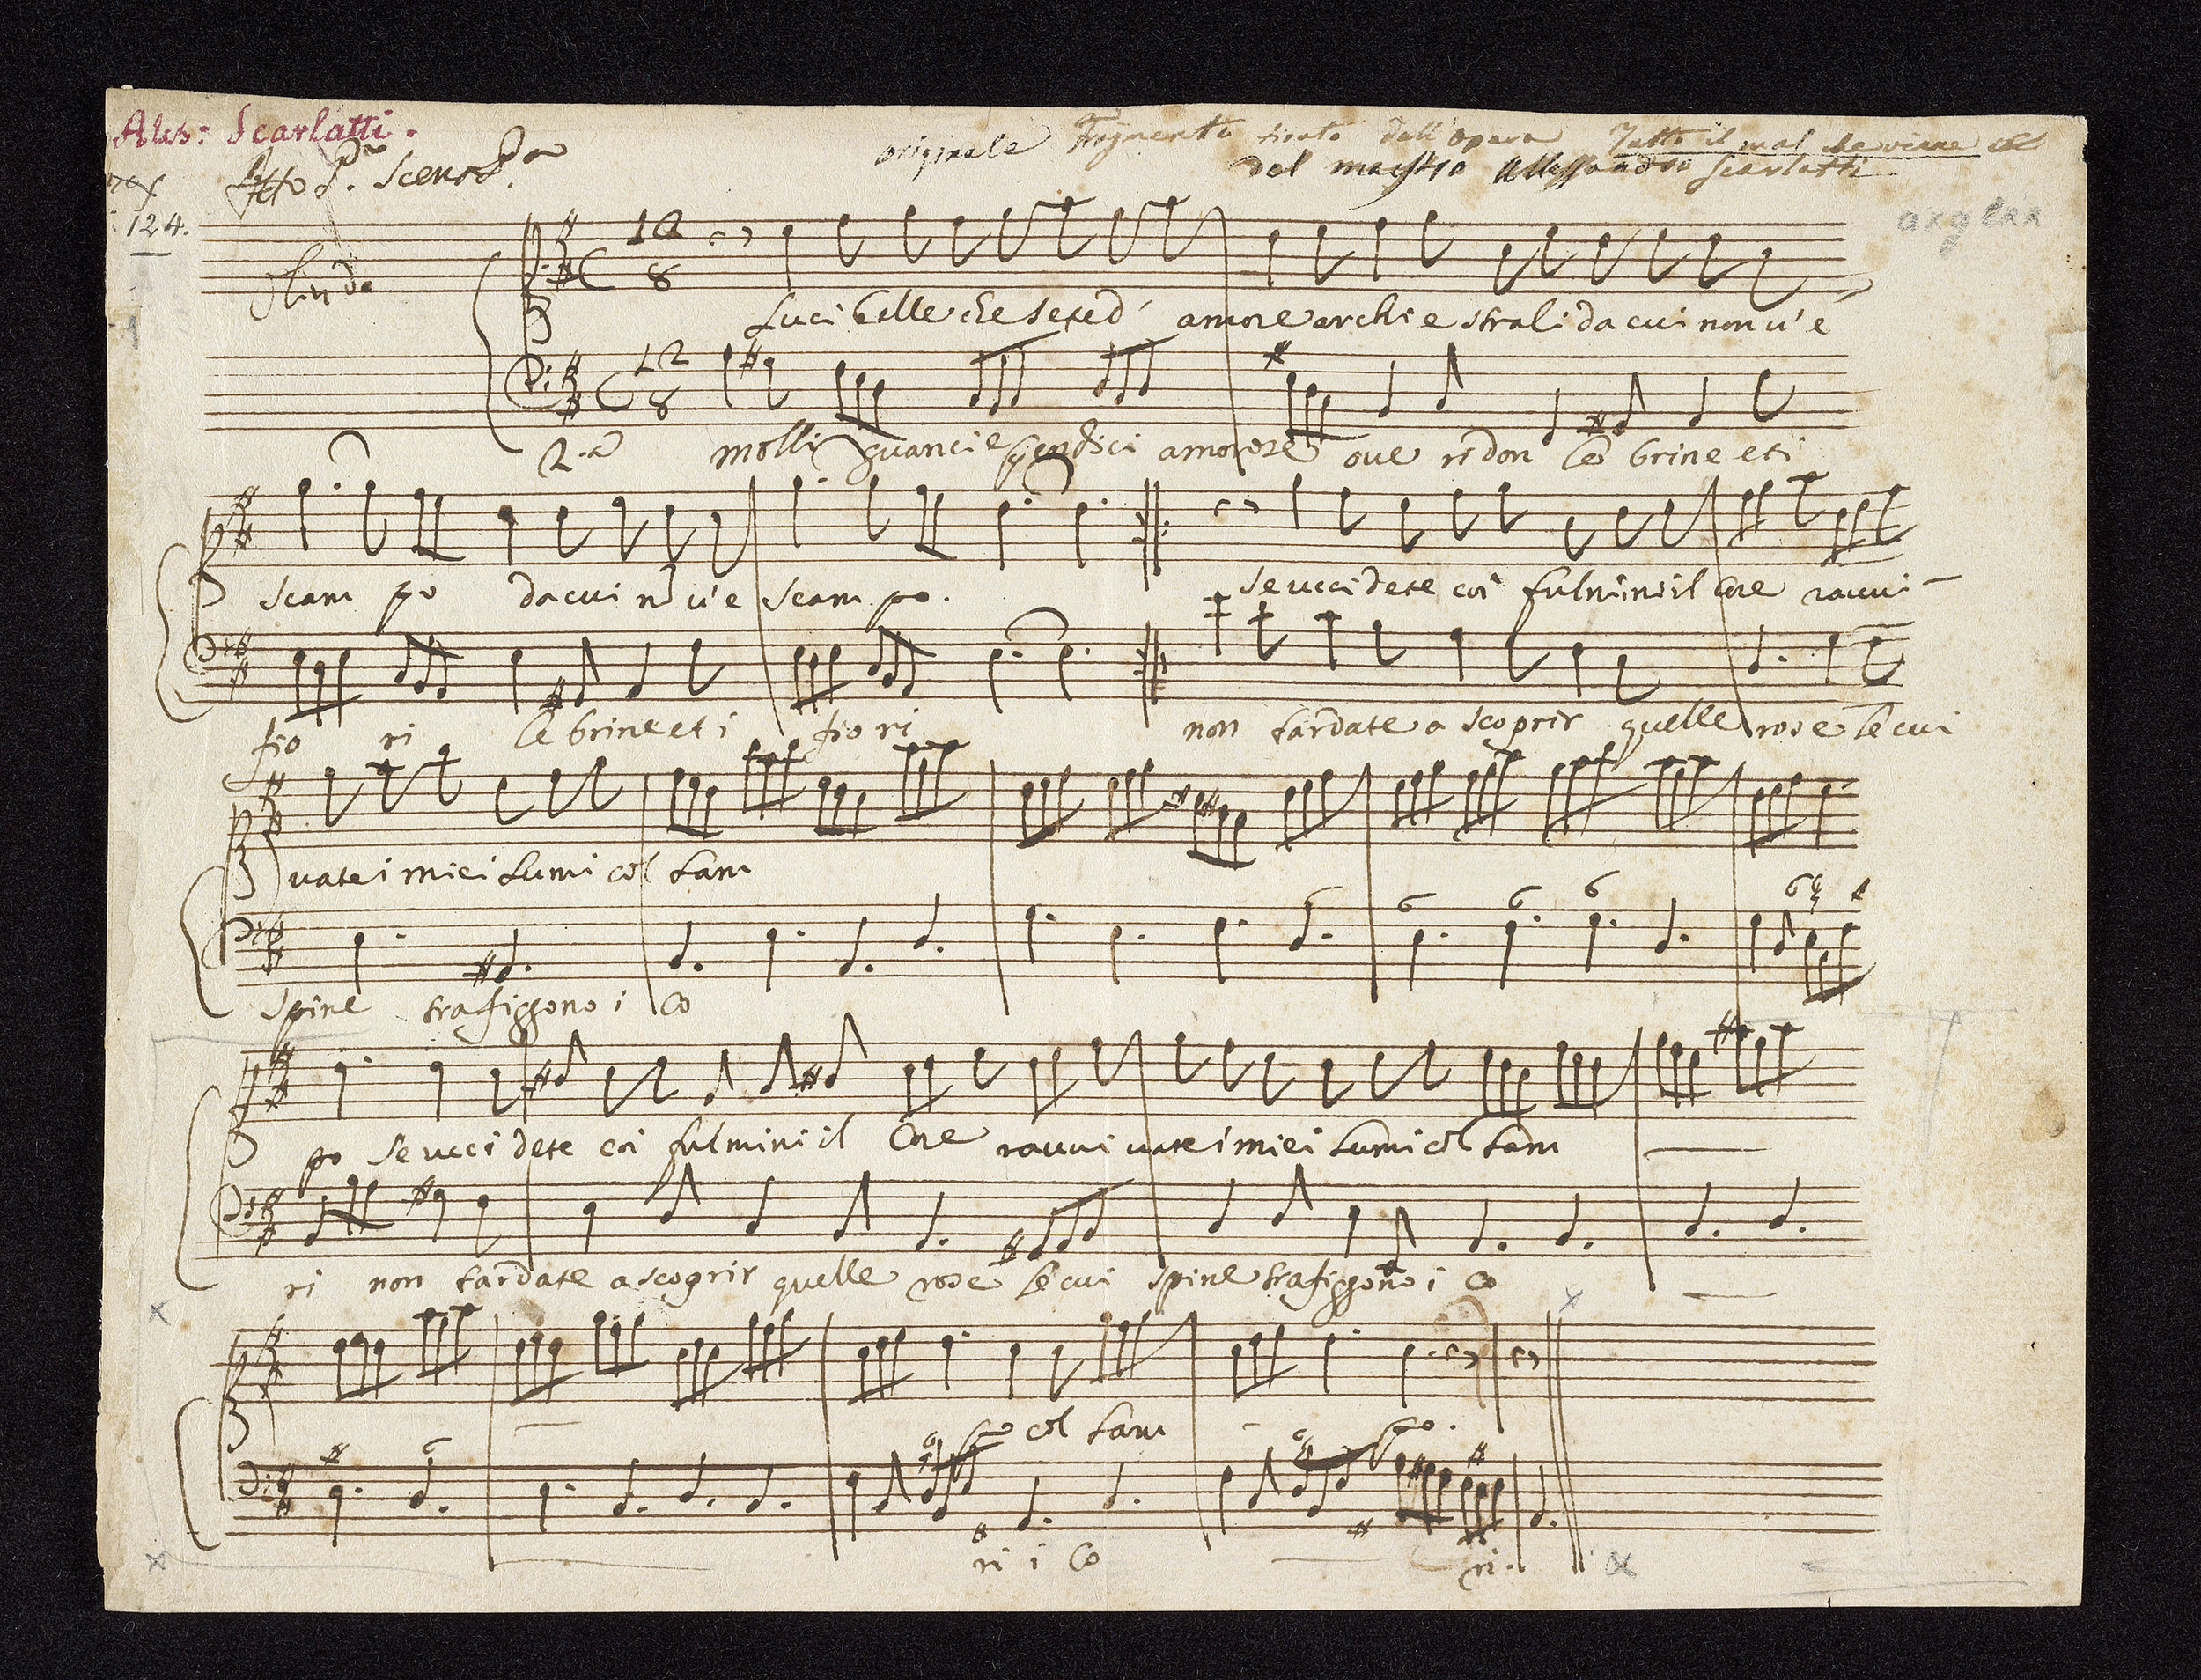 Ales: Scarlatti.
originale Fragmento tirato dall'opera Tutto il mal che viene
Atto P.º Scena P.a
del maestro Allessandro Scarlatti
124.
Olinda
12
8
Luci belle che sete d' amore archi e strali da cui non v'è
12
8
2.a molli guancie giardici amorose oue ridon le brine et i
scam po da cui nō v'e scam po. Se uccidete coi fulmini il Core rauui-
fio ri le brine et i fio ri non tardate a scoprir quelle rose le cui
uate i miei lumi col lam
6 6 6 6 6
spine trafiggono i Co
po Se uccidete coi fulmini il Core rauui uate i miei lumi col lam
ri non tardate a scoprir quelle rose le cui spine trafiggono i Co
po col lam po.
6 6 6
ri i Co ri.